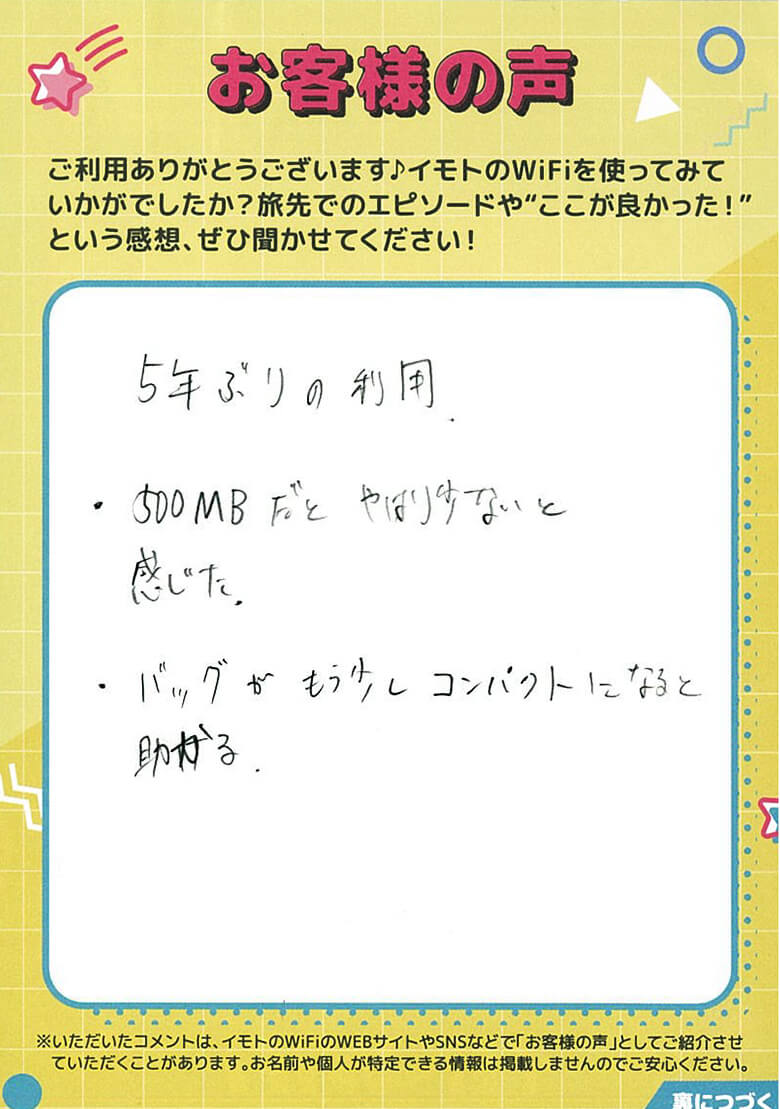 お客様の声
ご利用ありがとうございます♪イモトのWiFiを使ってみて
いかがでしたか？旅先でのエピソードや“ここが良かった！”
という感想、ぜひ聞かせてください！
5年ぶりの利用.
・500MBだと やはり少ないと
感じた.
・バッグが もう少し コンパクトになると
助かる.
※いただいたコメントは、イモトのWiFiのWEBサイトやSNSなどで「お客様の声」としてご紹介させ
ていただくことがあります。お名前や個人が特定できる情報は掲載しませんのでご安心ください。
裏につづく